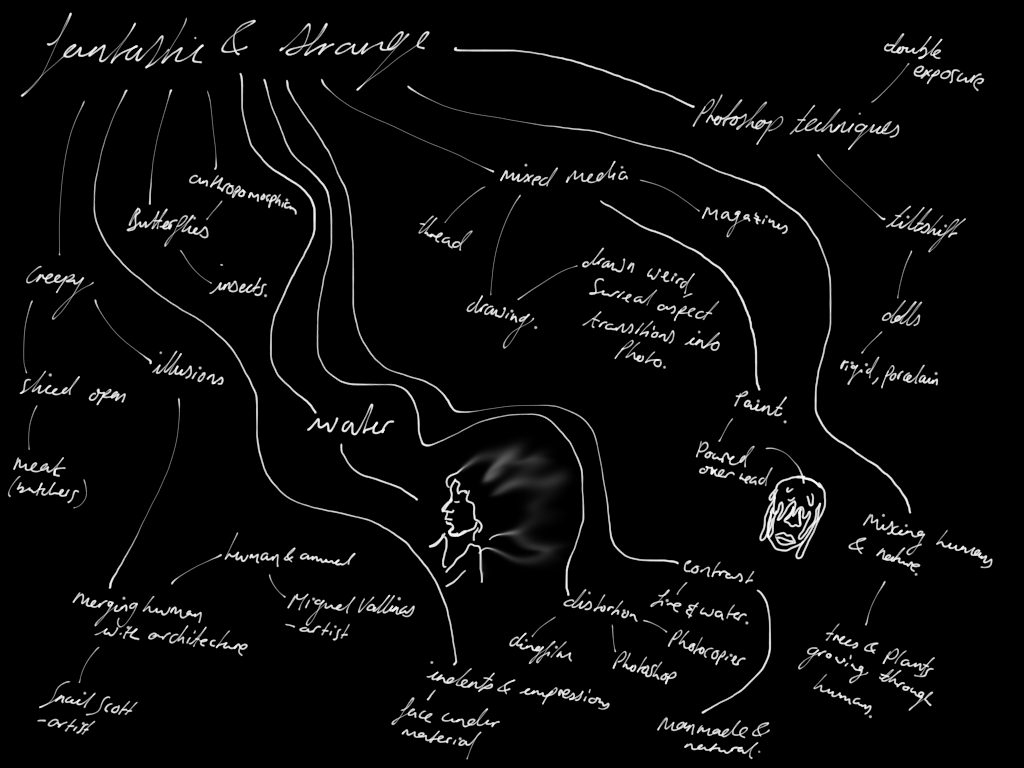 fantastic & strange
double
exposure
Photoshop techniques
mixed media
anthropomorphism
magazines
Butterflies
thread
tiltshift
insects.
Creepy
drawing.
drawn weird,
Surreal aspect
transitions into
Photo.
dolls
rigid, porcelain
illusions
sliced open
Paint.
water
Poured
over head
meat
(butchers)
Mixing humans
& nature.
human & animal
contrast
fire & water.
merging human
with architecture
Miguel Vallinas
- artist
distortion
clingfilm
Photoshop
Photocopier
trees & Plants
growing through
humans.
indents & impressions
face under
material
Snail Scott
- artist
Manmade &
natural.